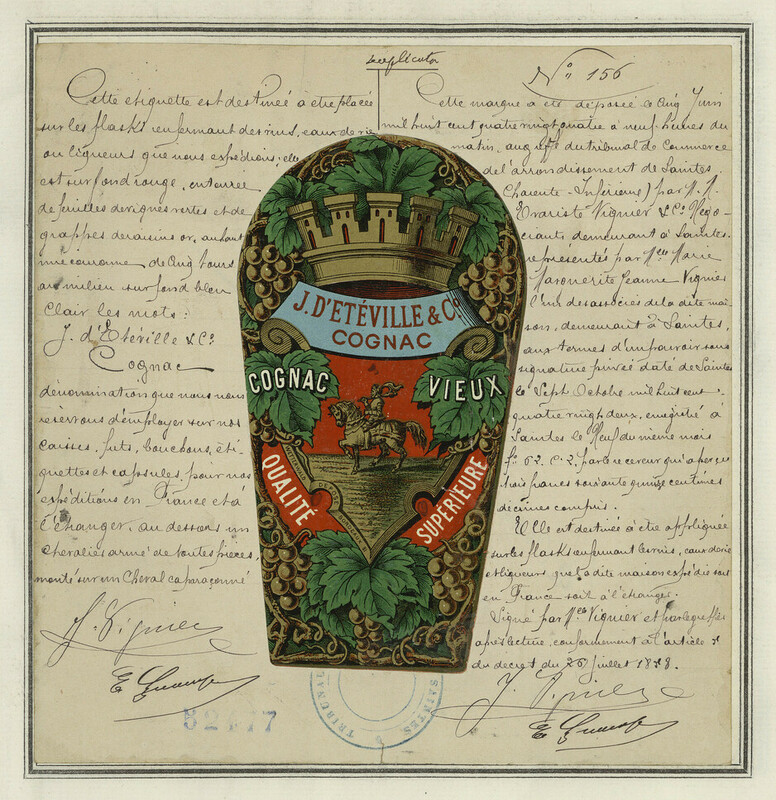 Duplicata
Nº 156
Cette etiquette est destinée à etre placée
sur les flasks renfermant des vins, eaux de vie
ou liqueurs que nous expédions; elle
est sur fond rouge, entourée
de feuilles de vignes vertes et de
grappes de raisins or, au haut
une couronne de Cinq tours
au milieu sur fond bleu
clair les mots:
J. d'Etéville & Cº
Cognac
dénomination que nous nous
réservons d'employer sur nos
caisses, futs, bouchons, éti-
quettes et capsules, pour nos
expéditions en France et à
l'étranger, au dessous un
chevalier armé de toutes pièces
monté sur un Cheval caparaçonné
J. Vignier
J. D'ETÉVILLE & Cº
COGNAC
COGNAC VIEUX
QUALITÉ SUPÉRIEURE
Cette marque a été déposée le Cinq Juin
mil huit cent quatre vingt quatre à neuf heures du
matin, au greffe du tribunal de Commerce
de l'arrondissement de Saintes
Charente-Inférieure) par M. M.
Evariste Vignier & Cº Négo-
ciants demeurant à Saintes.
représentés par Mlle Marie
Marguerite Jeanne Vignier
l'un des associés de la dite mai-
son, demeurant à Saintes,
aux termes d'un pouvoir sous
signature privée daté de Saintes
le Sept Octobre mil huit cent
quatre vingt deux, enregistré à
Saintes le Neuf du même mois
fº 62. C. 2. par le receveur qui a perçu
trois francs soixante quinze centimes
décimes compris.
Elle est destinée à être appliquée
sur les flasks renfermant les vins, eaux de vie
et liqueurs que la dite maison expédie soit
en France soit à l'étranger.
Signé par Mlle Vignier et par le greffier
après lecture, conformement à l'article 7
du decret du 26 Juillet 1858.
J. Vignier
TRIBUNAL
SAINTES